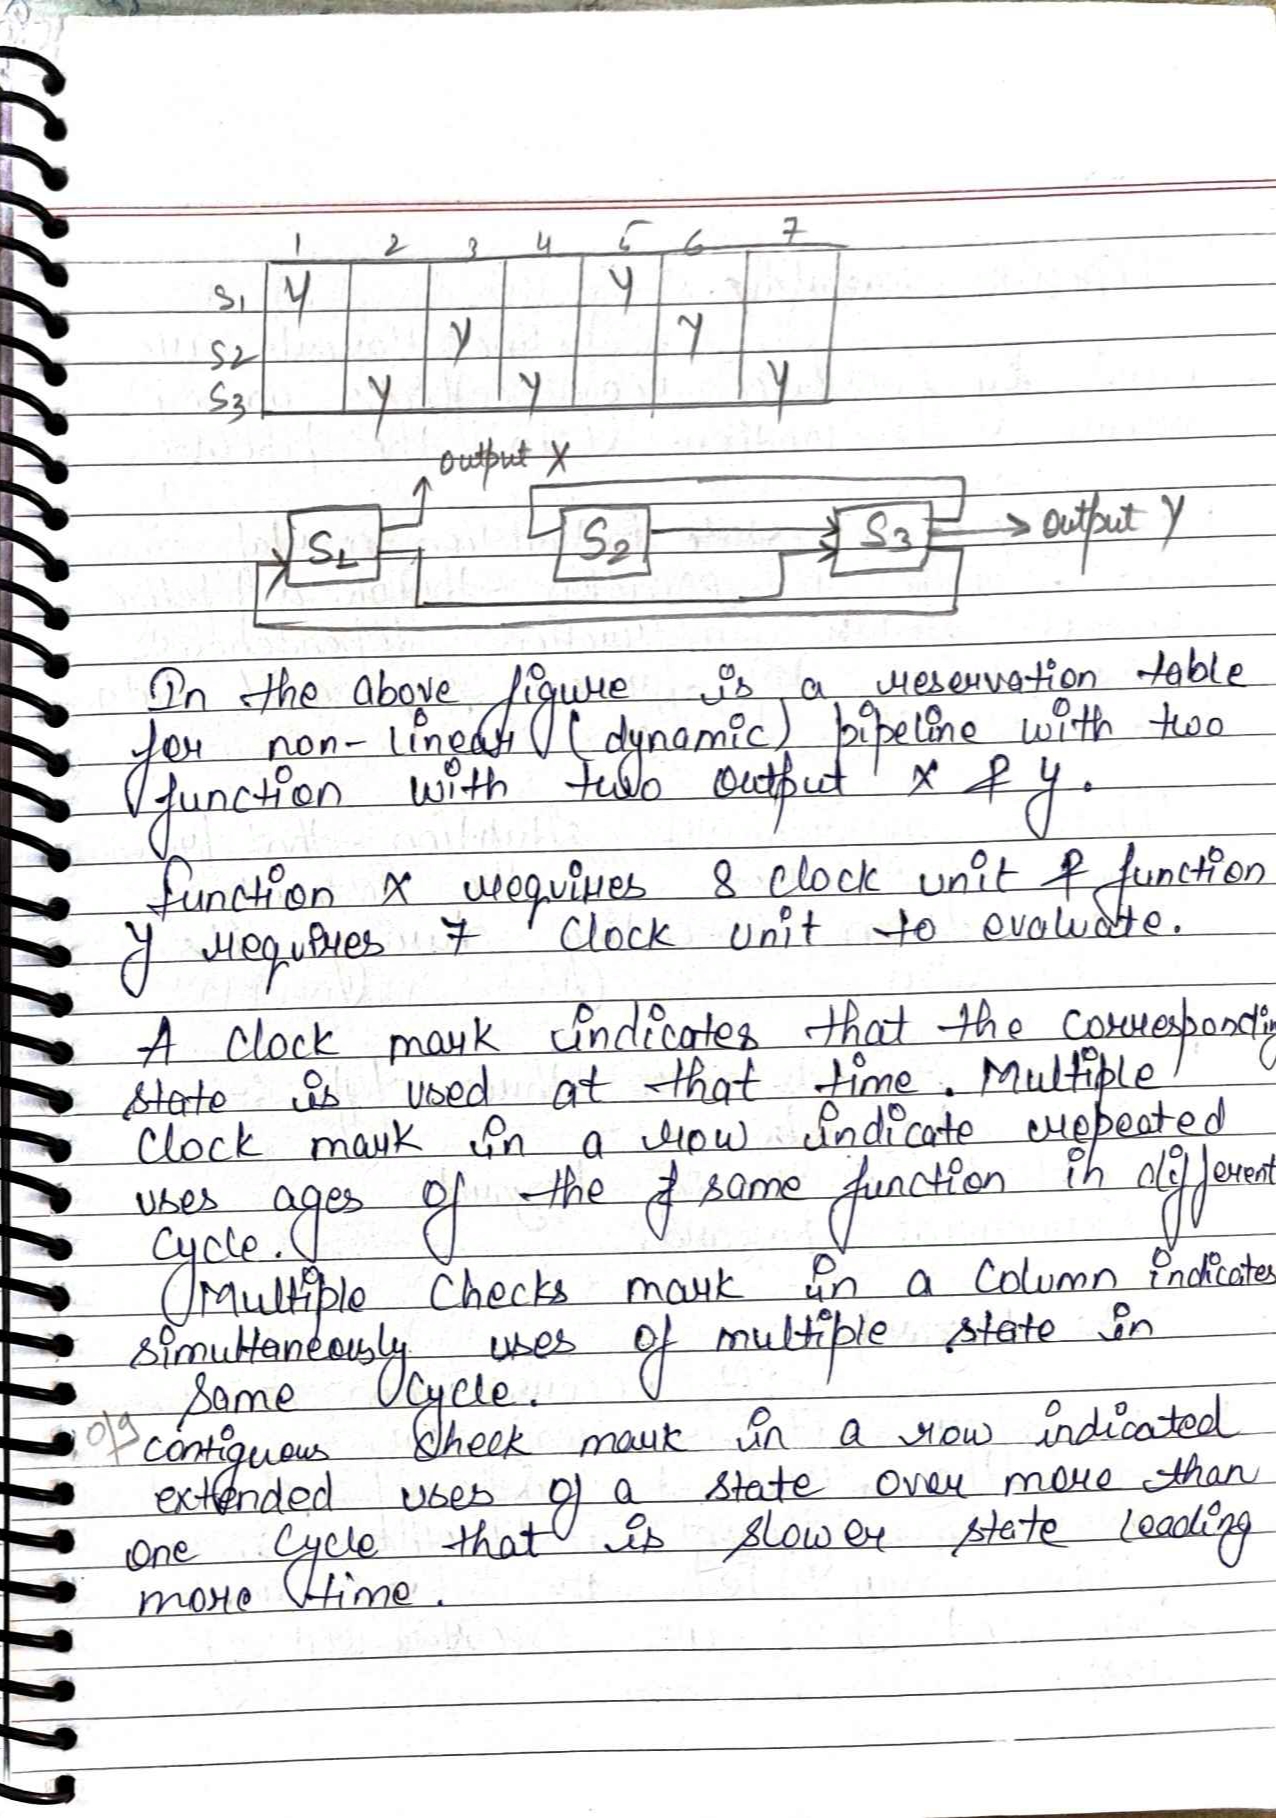 1 2 3 4 5 6 7
S1 Y Y
S2 Y Y
S3 Y Y Y
output X
S1 S2 S3 output Y
In the above figure is a reservation table
for non-linear (dynamic) pipeline with two
function with two output x & y.
function x requires 8 clock unit & function
y requires 7 clock unit to evaluate.
A clock mark indicates that the correspondin
state is used at that time. Multiple
clock mark in a row indicate repeated
uses ages of the same function in different
cycle.
Multiple checks mark in a column indicates
simultaneously uses of multiple state in
same cycle.
contiguous check mark in a row indicated
extended uses of a state over more than
one cycle that is slower state leading
more time.